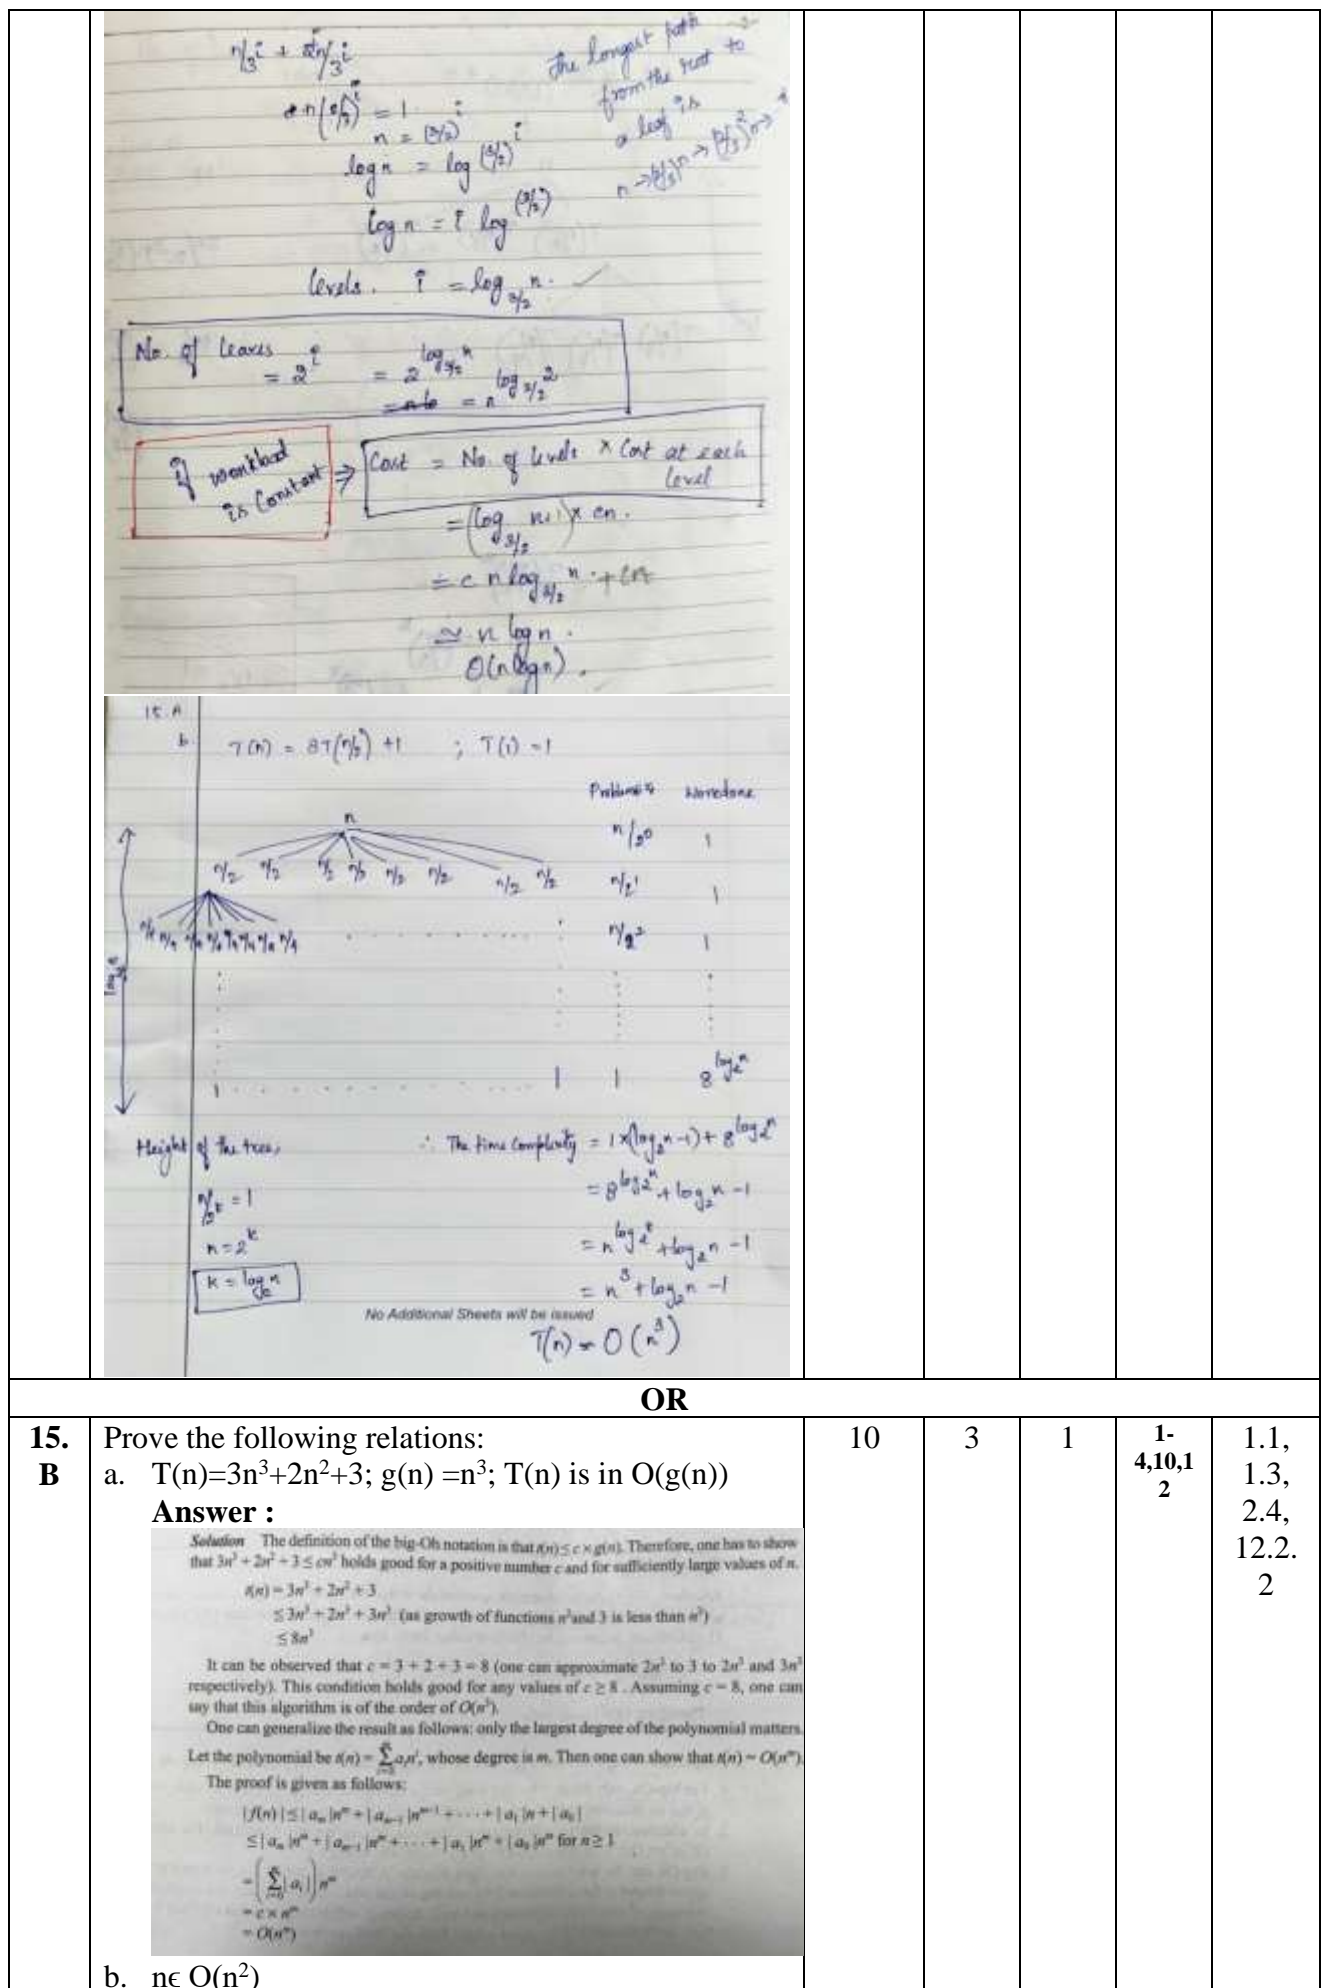 n/3^i + 2n/3^i
n(2/3)^i = 1
n = (3/2)^i
log n = log (3/2)^i
log n = i log (3/2)
levels. i = log_3/2 n.
The longest path
from the root to
a leaf is
n → (2/3)n → (2/3)^2 n →
No. of leaves
= 2^i = 2^log_3/2 n
= n^log_3/2 2
if workload
is Constant
⇒ Cost = No. of levels × Cost at each
level
= (log_3/2 n+1) × cn.
= c n log_3/2 n + cn
≃ n log n.
O(n log n).
15.A
b. T(n) = 8T(n/2) + 1 ; T(1) = 1
n/2^0 1
n
n/2 n/2 n/2 n/2 n/2 n/2 n/2 n/2 n/2^1 1
n/4 n/4 n/4 n/4 n/4 n/4 n/4 n/4 n/2^2 1
1 1 1 8^log_2 n
Height of the tree,
n/2^k = 1
n = 2^k
k = log_2 n
∴ The time complexity = 1×(log_2 n-1) + 8^log_2 n
= 8^log_2 n + log_2 n - 1
= n^log_2 8 + log_2 n - 1
= n^3 + log_2 n - 1
No Additional Sheets will be issued
T(n) = O(n^3)
OR
15. B Prove the following relations: 10 3 1 1-4,10,12 1.1, 1.3, 2.4, 12.2.2
a. T(n)=3n³+2n²+3; g(n) =n³; T(n) is in O(g(n))
Answer :
Solution The definition of the big-Oh notation is that t(n) ≤ c × g(n). Therefore, one has to show
that 3n³ + 2n² + 3 ≤ cn³ holds good for a positive number c and for sufficiently large values of n.
t(n) = 3n³ + 2n² + 3
≤ 3n³ + 2n³ + 3n³ (as growth of functions n² and 3 is less than n³)
≤ 8n³
It can be observed that c = 3 + 2 + 3 = 8 (one can approximate 2n² to 3 to 2n³ and 3n³
respectively). This condition holds good for any values of c ≥ 8 . Assuming c = 8, one can
say that this algorithm is of the order of O(n³).
One can generalize the result as follows: only the largest degree of the polynomial matters.
Let the polynomial be t(n) = Σ aᵢnⁱ, whose degree is m. Then one can show that t(n) = O(nᵐ).
The proof is given as follows:
|f(n)| ≤ |aₘ|nᵐ + |aₘ₋₁|nᵐ⁻¹ + ···· + |a₁|n + |a₀|
≤ |aₘ|nᵐ + |aₘ₋₁|nᵐ + ···· + |a₁|nᵐ + |a₀|nᵐ for n ≥ 1
= (Σ|aᵢ|) nᵐ
= c × nᵐ
= O(nᵐ)
b. nϵ O(n²)